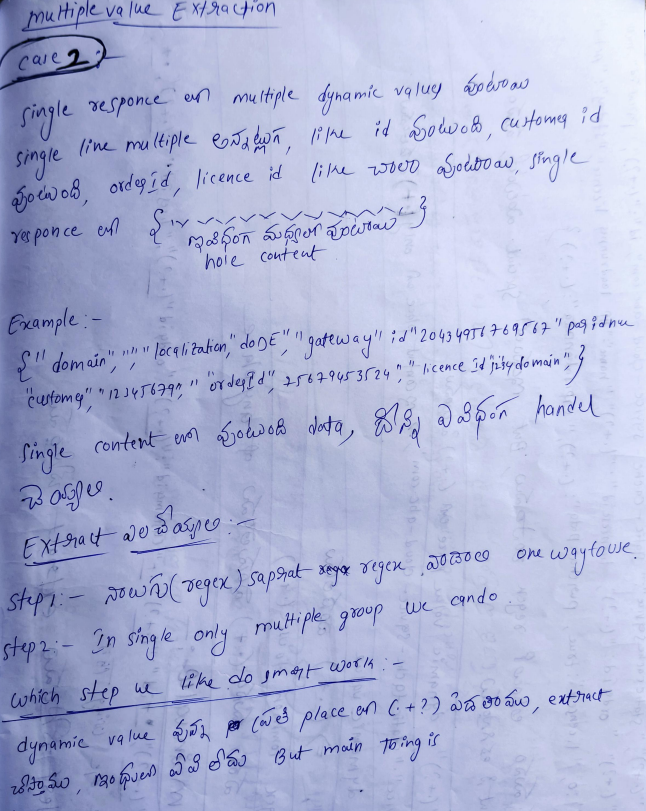 Multiple value Extraction
Case 2 :-
single responce లో multiple dynamic values వుంటాయి
single line multiple అన్నట్లుగ, like id వుంటుంది, customer id
వుంటుంది, orderId, licence id like చాలా వుంటాయి, single
responce లో { }
ఇవిధంగ మధ్యలో వుంటాయి
hole content
Example :-
{"domain","","localization","dODE","gateway" id "20434956769567"
"customer","12345679","orderId", 25679453524","licence id" domain",}
single content లో వుంటుంది data, దీన్ని ఏవిధంగ handel
చెయ్యాలి.
Extract ఎలచేయ్యాలి :-
step1 :- నాలుగు (regex) saprat regex వాడాలి one way to use.
step2 :- In single only multiple group we can do.
which step we like do smart work :-
dynamic value వున్న ప్రతి place లో (.+?) పెడతాము, extract
చేస్తాము, ఇందులో ఏవి లేదు But main thing is